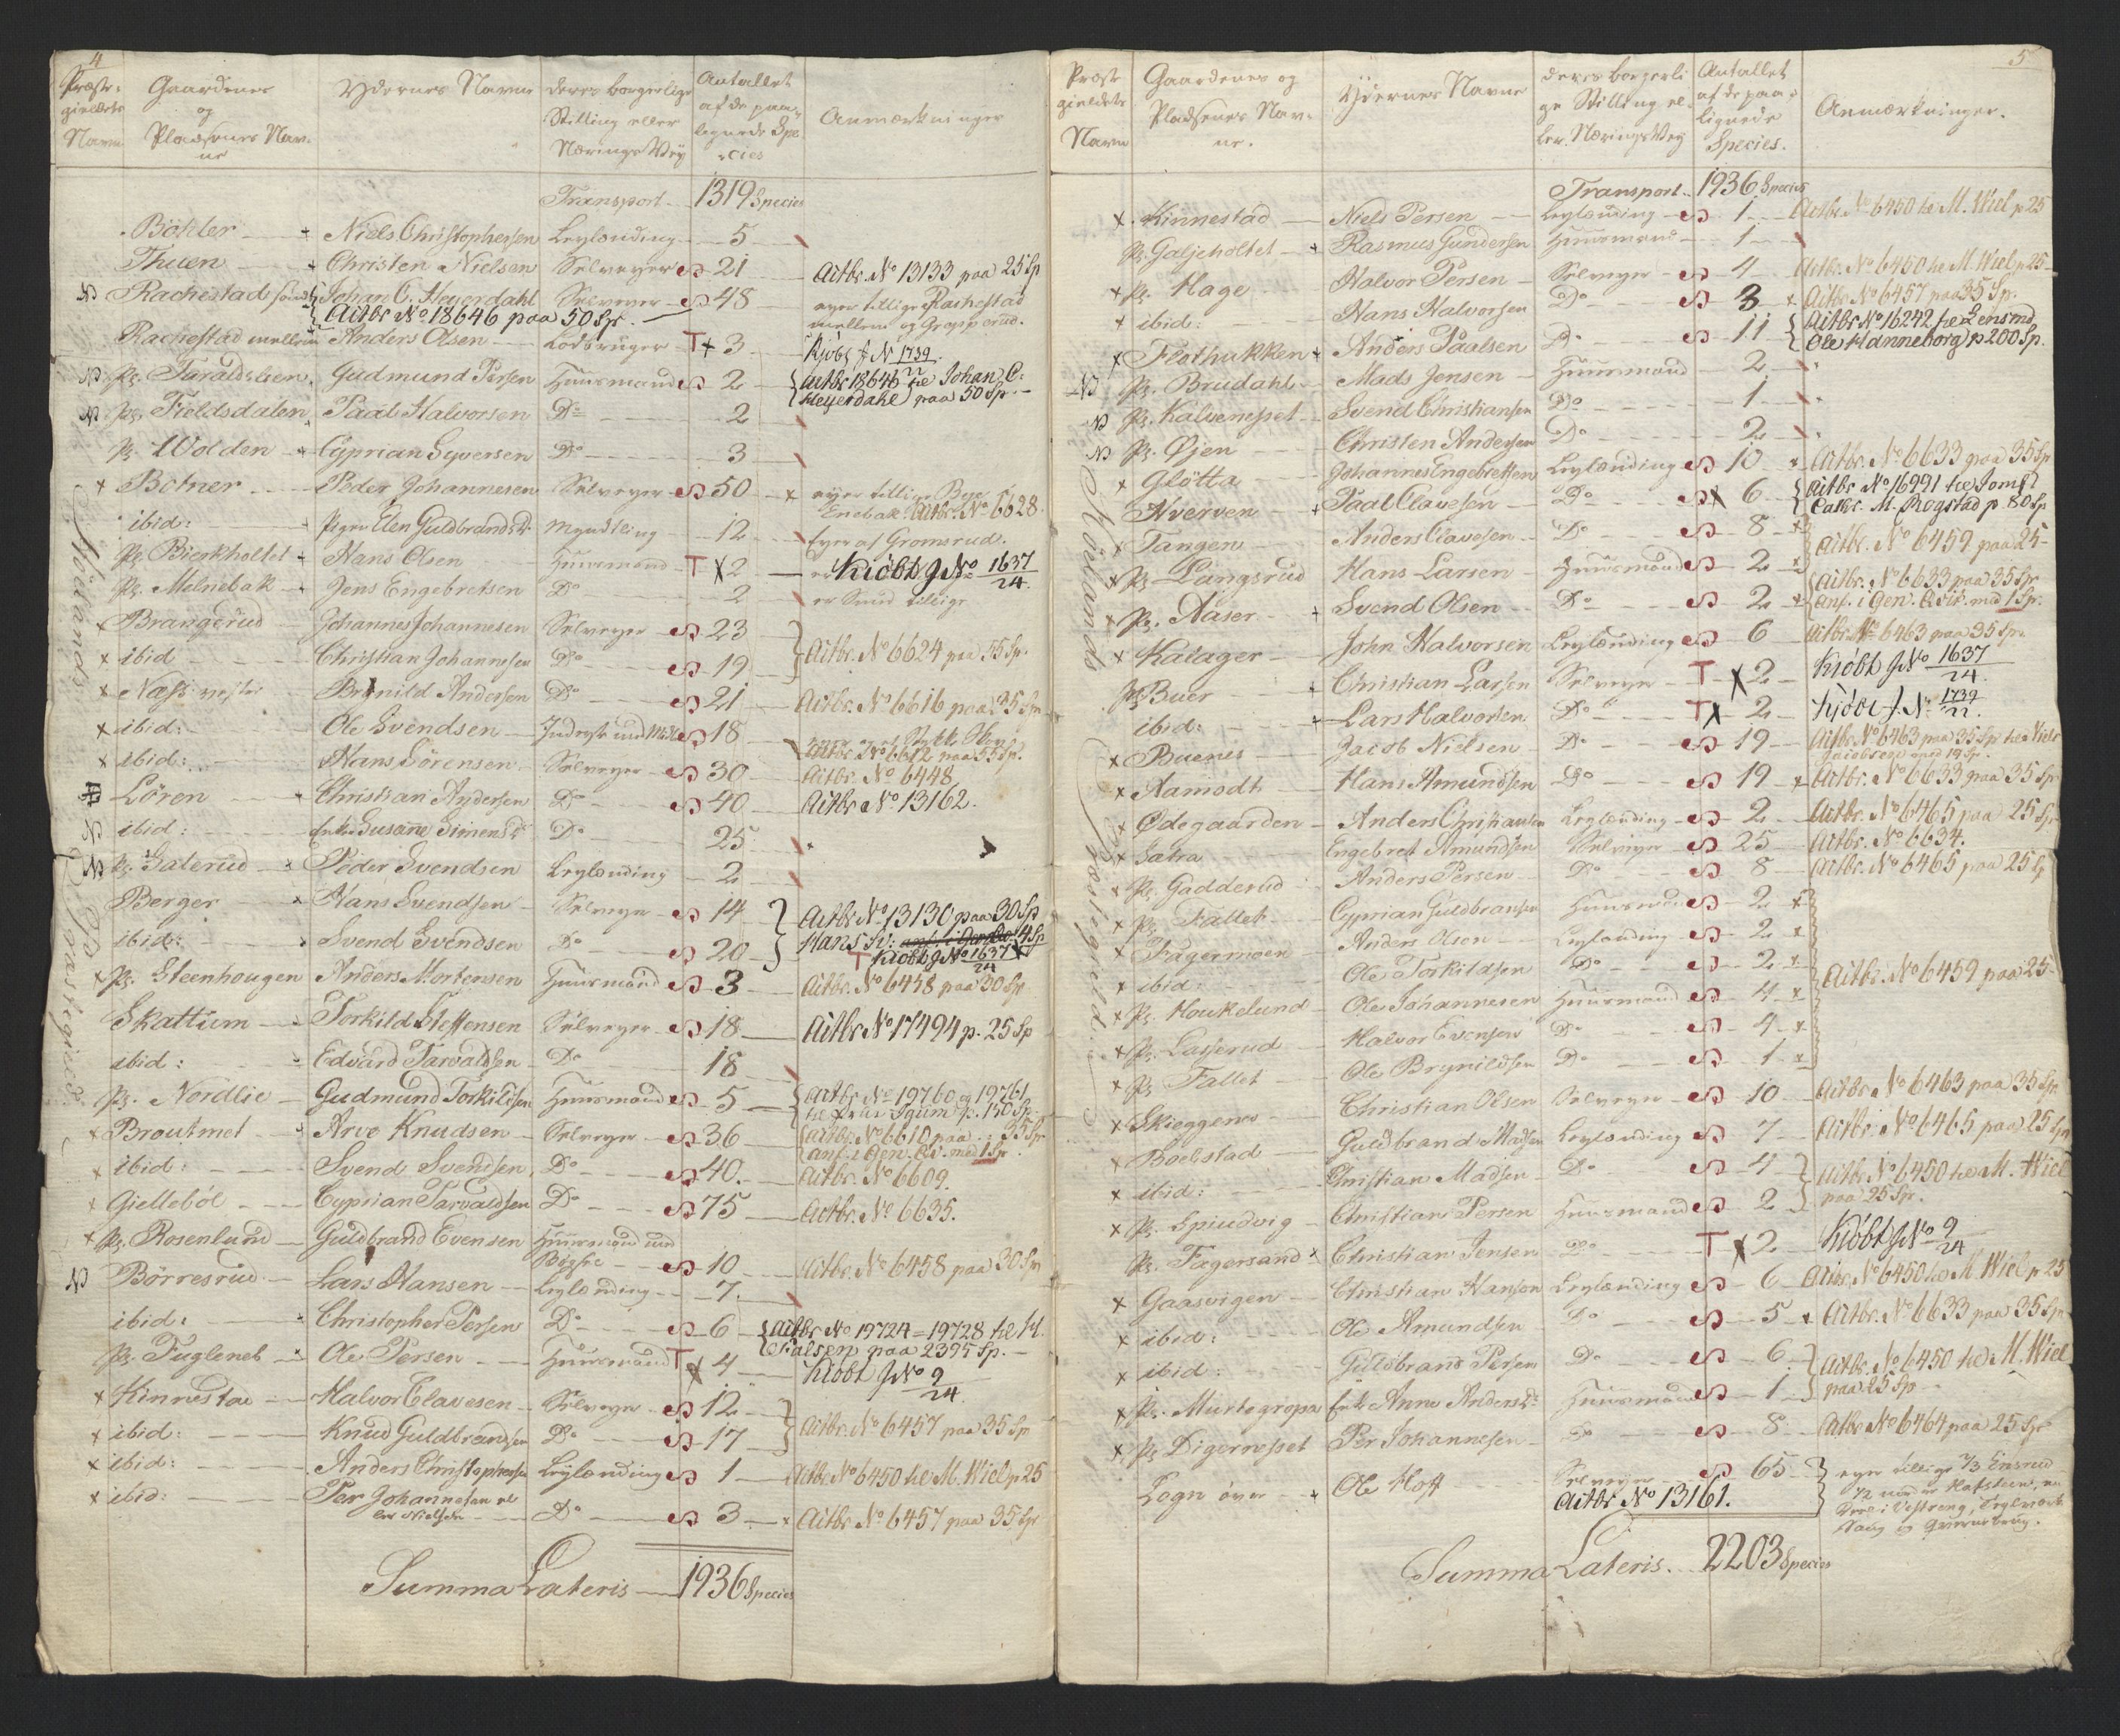 4
Præste-
gieldets
Navn
Gaardenes
og
Pladsenes Nav-
ne
Ydernes Navne
deres borgerlige
Stilling eller
Nærings Vey
Antallet
af de paa-
lignede Spe-
cies
Anmærkninger
Høelands Præstegield
Transport 1319 Species
Böhler Niels Christophersen Leylænding 5
Thuen Christen Nielsen Selveyer 21 Aitbr. No 13133 paa 25 Sp
Rachestad Johan C. Heyerdahl Selveyer 48 eyer tillige Rachestad
Aitbr No 18646 paa 50 Sp. mellem og
Rachestad mellem Anders Olsen T 3 Kjöbt J. N 1739/22
Ps. Taraldslien Gudmund Persen Huusmand 2 Aitbr 18646 hc Johan C.
Heyerdahl paa 50 Sp.
Ps. Fieldsdalen Paal Halvorsen Do 2
Ps. Wolden Cyprian Syversen Do 3
Botner Peder Johannesen Selveyer 50 eyer tillige Bye i
Enebak. Aitbr. No 6628
ibid: Elen Guldbrandsdr Myndtling 12 eyer af Gromsrud.
Ps. Bierkholtet Hans Olsen Huusmand T 2 Kiöbt J No 1637/24
Ps. Melnebak Jens Engebretsen Do 2 er Smed tillige
Brangerud Johannes Johannesen Selveyer 23
ibid Christian Johannesen Do 19 Aitbr. No 6624 paa 55 Sp.
Næss vestre Brynild Andersen Do 21 Aitbr. No 6616 paa 35 Sp
ibid: Ole Svendsen 18
ibid: Hans Sörensen Selveyer 30 Aitbr. No 6612 paa 55 Sp.
Aitbr. No 6448
Lören Christian Andersen Do 40 Aitbr No 13162.
ibid: Enke Susanne Simensdr Do 25
Ps. Gaterud Peder Svendsen Leylænding 2
Berger Hans Svendsen Selveyer 14 Aitbr No 13130 paa 30 Sp
ibid: Svend Svendsen Do 20 Hans Sv: 4 Sp
T Kiöbt J No 1637/24
Ps. Steenhougen Anders Mortensen Huusmand 3 Aitbr. No 6458 paa 30 Sp
Skattum Torkild Steffensen Selveyer 18 Aitbr No 17494 p. 25 Sp
ibid: Edvard Tarvaldsen Do 18
Ps. Nordlie Gudmund Torkildsen Huusmand 5 Aitbr No 19760 og 19761
hc p. 150 Sp.
Broutmet Arve Knudsen Selveyer 36 Aitbr. No 6610 paa 35 Sp
anf. i Gen. Qv. med 1 Sp.
ibid: Svend Svendsen Do 40. Aitbr. No 6609.
Gielleböl Cyprian Tarvaldsen Do 75 Aitbr. No 6635.
Ps. Rosenlund Guldbrand Evensen Huusmand
10 Aitbr. No 6458 paa 30 Sp
Börresrud Lars Hansen Leylænding 7.
ibid: Christopher Persen Do 6 Aitbr No 19724 = 19728 hc
paa 2395 Sp.
Ps. Fugleneb Ole Persen Huusmand T 4 Kiöbt J No 9/24
Kinnestad Halvor Clavesen Selveyer 12
ibid: Knud Guldbrandsen Do 17 Aitbr. No 6457 paa 35 Sp
ibid: Anders Christophersen Leylænding 1 Aitbr No 6450 hc M. Wiel p 25
ibid: Per Johannesen
Do 3 Aitbr. No 6457 paa 35 Sp
Summa Lateris 1936 Species
5
Præst-
gieldets
Navn
Gaardenes og
Pladsenes Nav-
ne.
Ydernes Navne
deres borgerli
ge Stilling el-
ler Nærings Vey
Antallet
af de paa-
lignede
Species.
Anmærkninger.
Hölands Præstegield
Transport 1936 Species
Kinnestad Niels Persen Leylænding 1 Aitbr. No 6450 hc M. Wiel p 25
Ps. Galjeholtet Rasmus Gundersen Huusmand 1
Ps. Hage Halvor Persen Selveyer 4 Aitbr. No 6450 hc M. Wiel p 25
ibid: Hans Halvorsen Do 3 Aitbr No 6457 paa 35 Sp.
Flothukken Anders Paalsen Do 11 Aitbr No 16242 hc Lensmd
Ole Hanneborg p 200 Sp.
Ps. Brudahl Mads Jensen Huusmand 2
Ps. Kalvenesset Svend Christiansen Do 1
Ps. Øjen Christen Andersen Do 2
Glötta Johannes Engebretsen Leylænding 10 Aitbr. No 6633 paa 35 Sp
Nverven Paal Clavesen Do 6 Aitbr No 16991 hc Jomfr
Cathr. M. Rogstad p 80 Sp
Tangen Anders Clavesen Do 8
Ps. Langsrud Hans Larsen Huusmand 2 Aitbr. No 6459 paa 25
Ps. Aaser Svend Olsen Do 2 Aitbr. No 6633 paa 35 Sp
anf. i Gen. Qvit. med 1 Sp.
Kalager John Halvorsen Leylænding 6 Aitbr. No 6463 paa 35 Sp.
Ps Buer Christian Larsen Selveyer T 2 Kiöbt J No 1637/24
ibid: Lars Halvorsen Do T 2 Kjöbt J. N. 1739/22.
Buenes Jacob Nielsen Do 19 Aitbr No 6463 paa 35 Sp hc Niels
Jacobsen med 19 Sp.
Aamodt Hans Amundsen Do 19 Aitbr. No 6633 paa 35 Sp
Ødegaarden Anders Christiansen Leylænding 2 Aitbr. No 6465 paa 25 Sp
Sætra Engebret Amundsen Selveyer 25 Aitbr. No 6634.
Ps. Gadderud Anders Persen Do 8 Aitbr. No 6465 paa 25 Sp
Ps. Fallet Cyprian Guldbransen Huusmand 2
Fagermoen Anders Olsen Leylænding 2
ibid: Ole Torkildsen Do 2 Aitbr. No 6459 paa 25
Ps. Houkelund Ole Johannesen Huusmand 4
Ps. Lasserud Halvor Evensen Do 4
Ps Fallet Ole Brynildsen Do 1
Skieggenes Christian Olsen Selveyer 10 Aitbr. No 6463 paa 35 Sp
Boelstad Guldbrand Madsen Leylænding 7 Aitbr. No 6465 paa 25 Sp
ibid: Christian Madsen Do 4 Aitbr. No 6450 hc M. Wiel
Ps. Spiudvig Christian Persen Huusmand 2 paa 25 Sp.
Ps. Fagersand Christian Jensen Do T 2 Kiöbt J No 9/24
Gaasvigen Christian Hansen Leylænding 6 Aitbr. No 6450 hc M Wiel p 25
ibid: Ole Amundsen Do 5 Aitbr. No 6633 paa 35 Sp
ibid: Guldbrand Persen Do 6 Aitbr. No 6450 hc M. Wiel
Ps. Murtegropa Enke Anne Andersdr Huusmand 1 paa 25 Sp
Ps Digernesset Per Johannesen Do 8 Aitbr No 6464 paa 25 Sp
Logn över Ole Hoff Selveyer 65 eyer tillige 2/3 Ensrud
Aitbr No 13161.
Saug og Qværnebrug.
Summa Lateris. 2203 Species